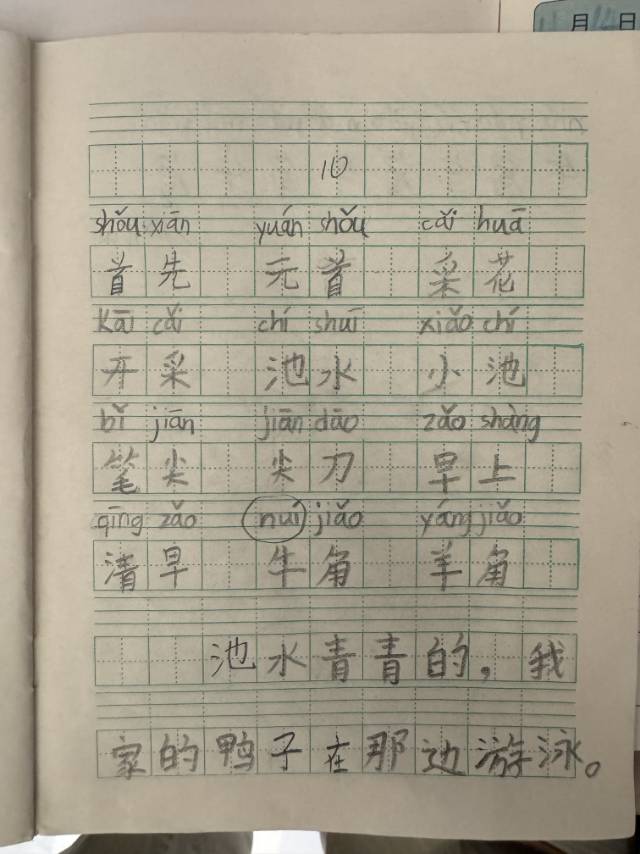 月 日
10
shǒu xiān yuán shǒu cǎi huā
首先 元首 采花
kāi cǎi chí shuǐ xiǎo chí
开采 池水 小池
bǐ jiān jiān dāo zǎo shàng
笔尖 尖刀 早上
qīng zǎo nuí jiǎo yáng jiǎo
清早 牛角 羊角
池水青青的，我
家的鸭子在那边游泳。